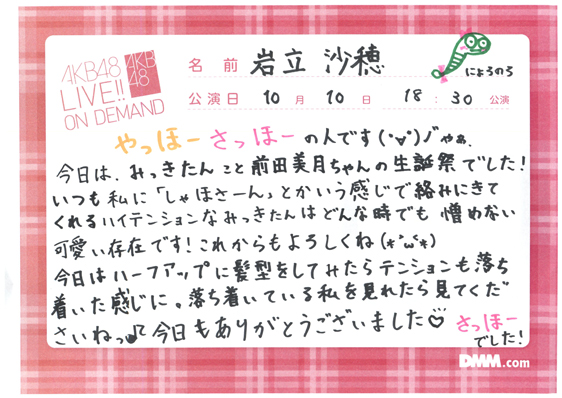 AKB48
LIVE!!
ON DEMAND
AKB
48
名前 岩立 沙穂
にょろのろ
公演日 10月10日 18:30公演
やっほー さっほー の人です(・∀・)ノ゛やぁ。
今日は、みっきたんこと前田美月ちゃんの生誕祭でした!
いつも私に「しゃほさーん」とかいう感じで絡みにきて
くれるハイテンションなみっきたんはどんな時でも憎めない
可愛い存在です!これからもよろしくね(*´ω`*)
今日はハーフアップに髪型をしてみたらテンションも落ち
着いた感じに。落ち着いている私を見れたら見てくだ
さいねっ♪今日もありがとうございました♡ さっほー
でした!
DMM.com